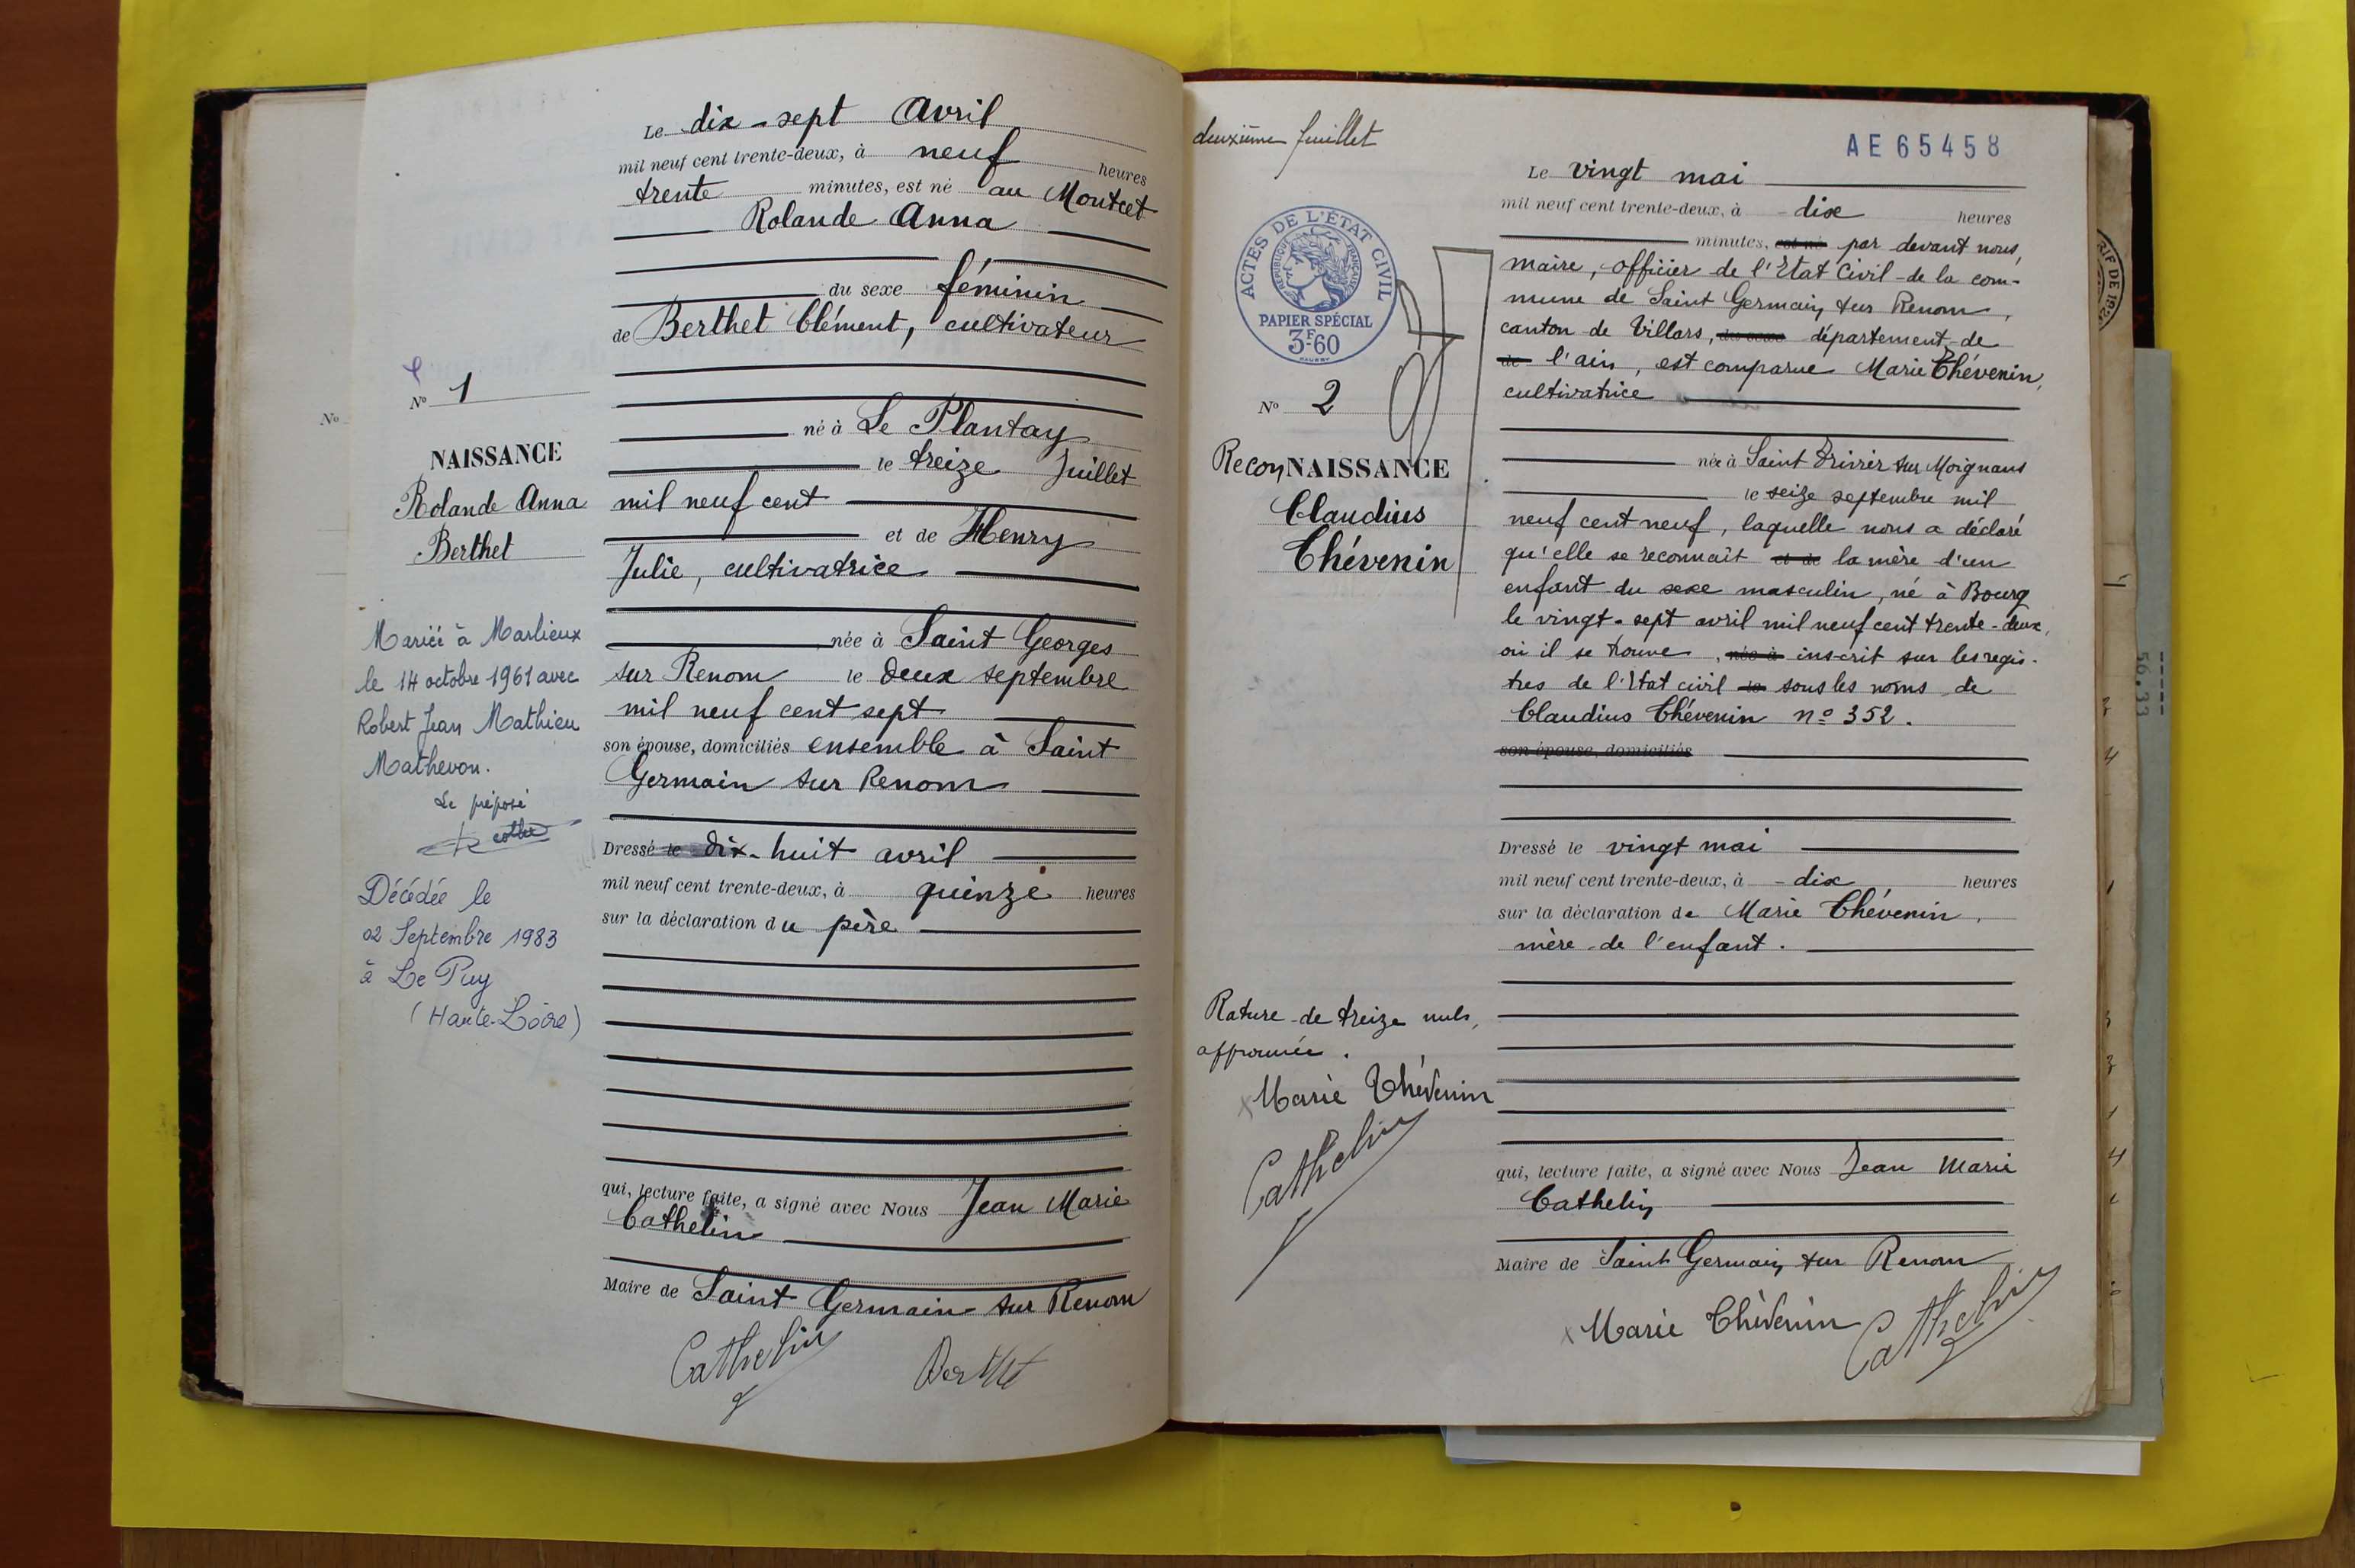 Le dix-sept Avril
mil neuf cent trente-deux, à neuf heures
trente minutes, est né au Montcet
Rolande Anna
du sexe féminin
de Berthet Clément, cultivateur
né à Le Plantay
le treize Juillet
mil neuf cent
et de Henry
Julie, cultivatrice
née à Saint Georges
sur Renom le deux septembre
mil neuf cent sept
son épouse, domiciliés ensemble à Saint
Germain sur Renom
Dressé le dix-huit avril
mil neuf cent trente-deux, à quinze heures
sur la déclaration du père
qui, lecture faite, a signé avec Nous Jean Marie
Cathelin
Maire de Saint Germain sur Renom
Cathelin Berthet
No
No 1
NAISSANCE
Rolande Anna
Berthet
Mariée à Marlieux
le 14 octobre 1961 avec
Robert Jean Mathieu
Mathevon.
Le préposé
Décédée le
02 Septembre 1983
à Le Puy
(Haute-Loire)
deuxième feuillet
AE 65458
ACTES DE L'ÉTAT CIVIL
RÉPUBLIQUE FRANÇAISE
PAPIER SPÉCIAL
3F60
No 2
ReconNAISSANCE
Claudius
Thévenin
Le vingt mai
mil neuf cent trente-deux, à dix heures
minutes, est né par devant nous,
maire, officier de l'Etat Civil de la com-
mune de Saint Germain sur Renom,
canton de Villars, du sexe département de
de l'ain, est comparue Marie Thévenin,
cultivatrice
née à Saint Trivier sur Moignans
le seize septembre mil
neuf cent neuf, laquelle nous a déclaré
qu'elle se reconnaît et de la mère d'un
enfant du sexe masculin, né à Bourg
le vingt-sept avril mil neuf cent trente-deux,
où il se trouve, née à inscrit sur les regis-
tres de l'Etat civil le sous les noms de
Claudius Thévenin no 352.
son épouse, domiciliés
Dressé le vingt mai
mil neuf cent trente-deux, à dix heures
sur la déclaration de Marie Thévenin,
mère de l'enfant.
Rature de treize nuls,
approuvée.
Marie Thévenin
Cathelin
qui, lecture faite, a signé avec Nous Jean Marie
Cathelin
Maire de Saint Germain sur Renom
Marie Thévenin Cathelin